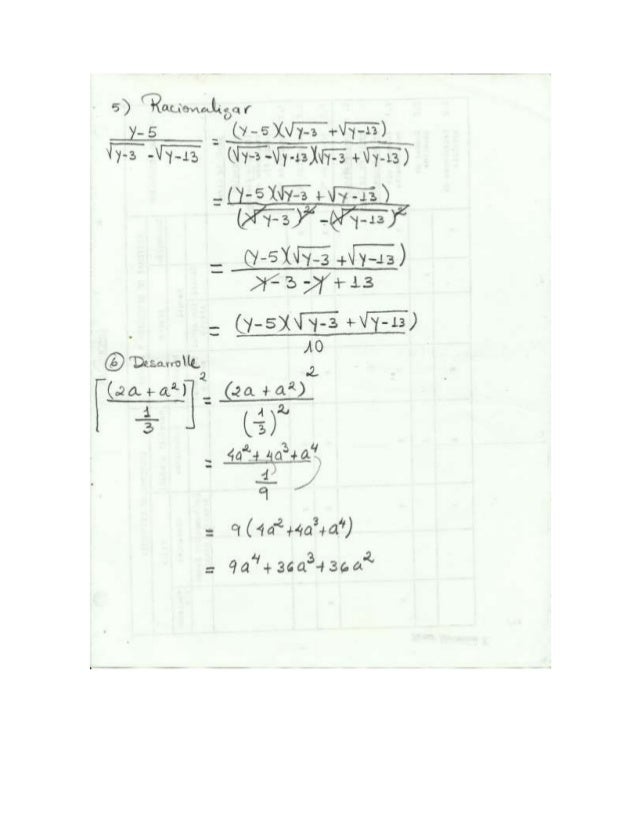 5) Racionalizar
y-5 / √y-3 - √y-13 = (y-5)(√y-3 + √y-13) / (√y-3 - √y-13)(√y-3 + √y-13)
= (y-5)(√y-3 + √y-13) / (√y-3)² - (√y-13)²
= (y-5)(√y-3 + √y-13) / y-3-y+13
= (y-5)(√y-3 + √y-13) / 10
⑥ Desarrolle
[(2a+a²) / 1/3]² = (2a+a²)² / (1/3)²
= 4a²+4a³+a⁴ / 1/9
= 9(4a²+4a³+a⁴)
= 9a⁴+36a³+36a²